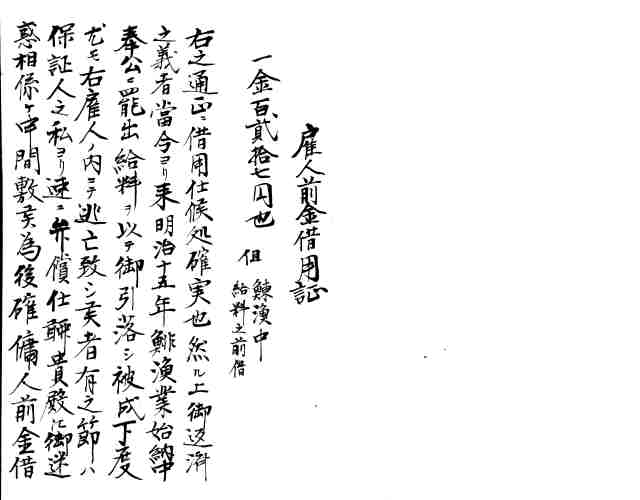 雇人前金借用証
一金百貳拾七円也
但 鰊漁中
給料之前借
右之通正ニ借用仕候処確実也然ル上御返済
之義者當今ヨリ来明治十五年鯡漁業始納中
奉公ニ罷出給料ヲ以テ御引落シ被成下度
尤モ右雇人ノ内ニテ逃亡致シ候者有之節ハ
保証人之私ヨリ速ニ弁償仕聊貴殿ニ御迷
惑相係ケ申間敷候為後確傭人前金借